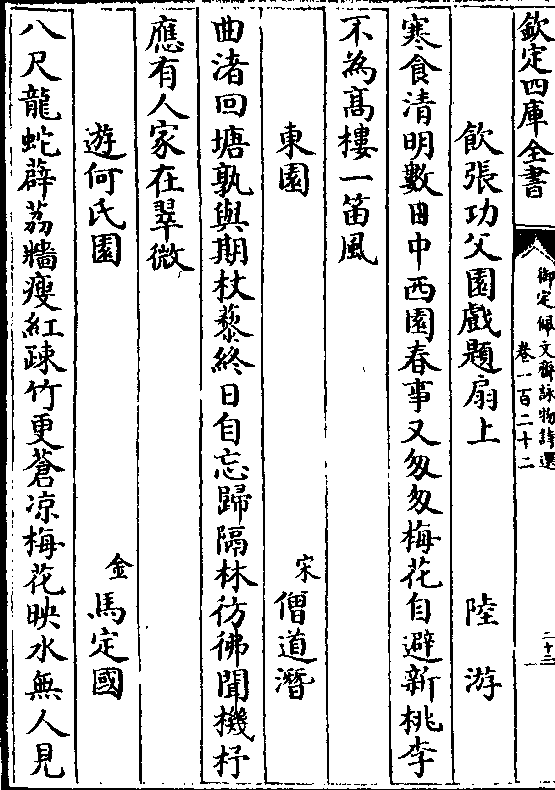 欽定四庫全書
御定佩文齋詠物詩選
卷一百二十二
二十三
飲張功父園戲題扇上 陸游
寒食清明數日中西園春事又匆匆梅花自避新桃李
不為髙樓一笛風
東園 宋 僧道潛
曲渚回塘孰與期杖藜終日自忘歸隔林彷彿聞機杼
應有人家在翠微
遊何氏園 金 馬定國
八尺龍蛇薜荔牆瘦紅疎竹更蒼涼梅花映水無人見